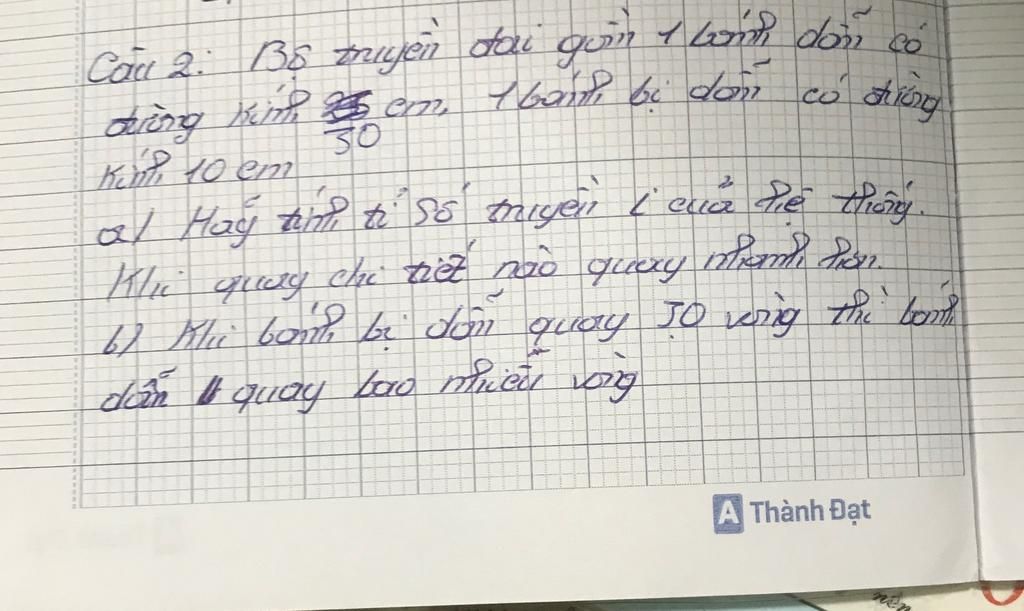 Câu 2: Bộ truyền đai gồm 1 bánh dẫn có
đường kính 50 cm, 1 bánh bị dẫn có đường
kính 10 cm
a/ Hãy tính tỉ số truyền i của hệ thống.
Khi quay chi tiết nào quay nhanh hơn.
b/ Khi bánh bị dẫn quay 50 vòng thì bánh
dẫn quay bao nhiêu vòng
A Thành Đạt